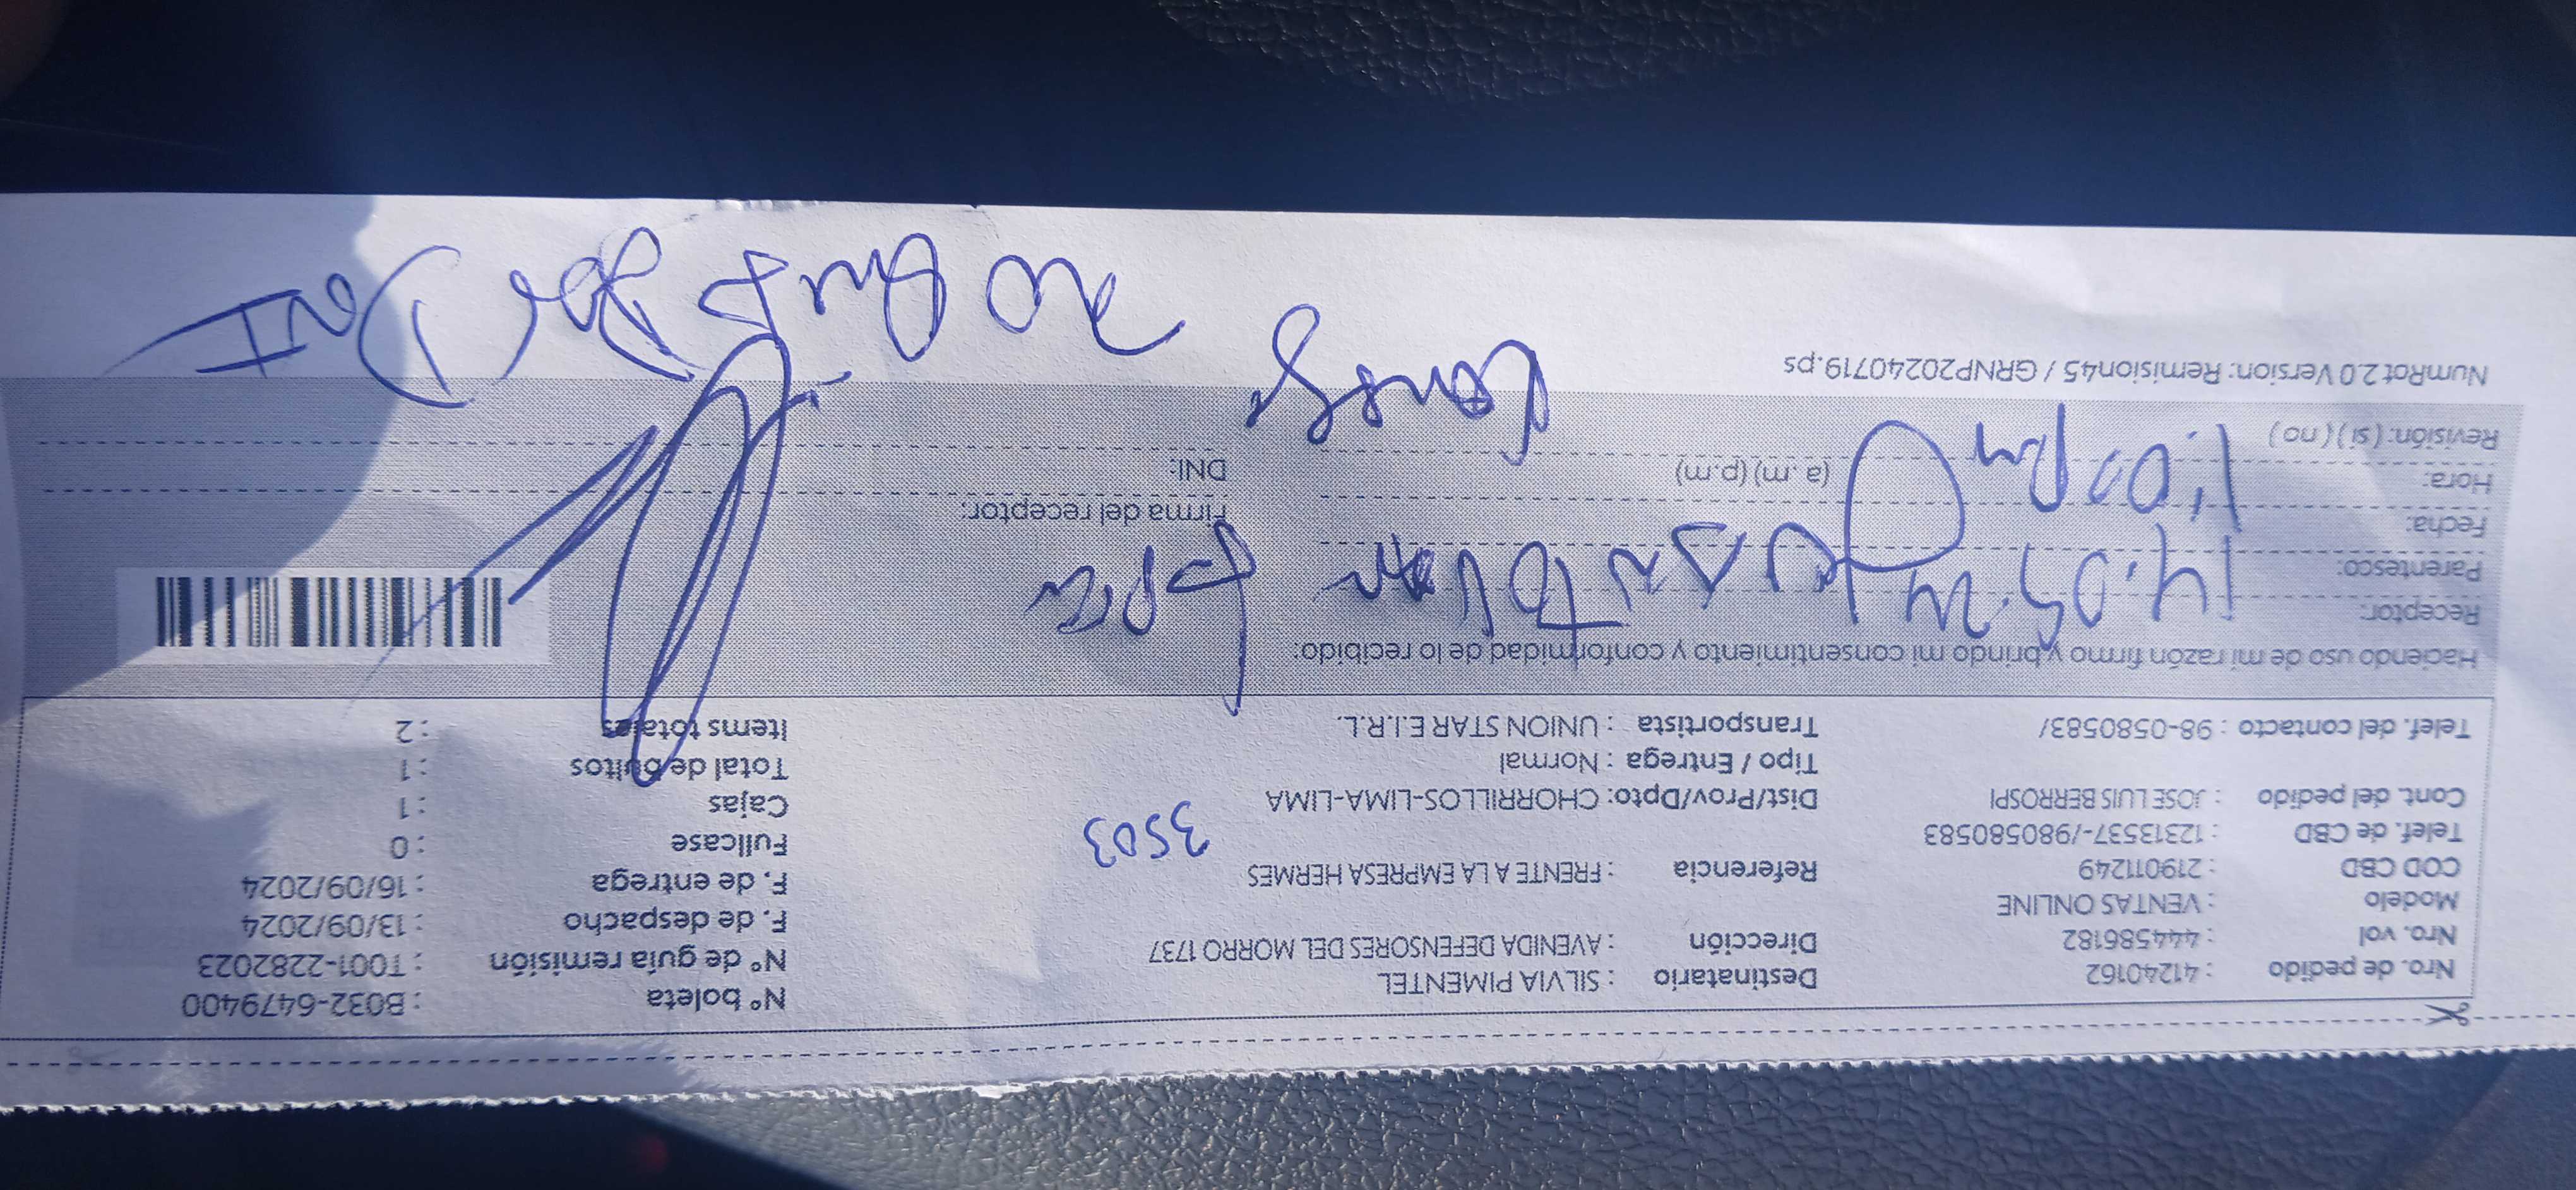 Nro. de pedido : 41240162
Nro. vol : 444586182
Modelo : VENTAS ONLINE
COD CBD : 219011249
Telef. de CBD : 12313537-/980580583
Cont. del pedido : JOSE LUIS BERROSPI
Telef. del contacto : 98-0580583/
Destinatario : SILVIA PIMENTEL
Dirección : AVENIDA DEFENSORES DEL MORRO 1737
Referencia : FRENTE A LA EMPRESA HERMES
3503
Dist/Prov/Dpto: CHORRILLOS-LIMA-LIMA
Tipo / Entrega : Normal
Transportista : UNION STAR E.I.R.L.
N° boleta : B032-6479400
N° de guía remisión : T001-2282023
F. de despacho : 13/09/2024
F. de entrega : 16/09/2024
Fullcase : 0
Cajas : 1
Total de bultos : 1
Items totales : 2
Haciendo uso de mi razón firmo y brindo mi consentimiento y conformidad de lo recibido:
Receptor:
Parentesco:
Fecha:
Hora: (a. m) (p.m)
Revisión: (si) (no)
Firma del receptor:
DNI:
1:00 pm
NumRot 2.0 Version: Remision45 / GRNP20240719.ps